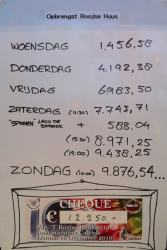 Opbrengst Rooise Huus
WOENSDAG 1.456,58
DONDERDAG 4.192,38
VRIJDAG 6983,50
ZATERDAG (11:30) 7.743,71
"SPANNEN" LACO DE + 588,04
(15:30) 8.971,25
(19:00) 9.438,25
ZONDAG (10:00) 9.876,54...
CHEQUE
€ 12.250,-
2010